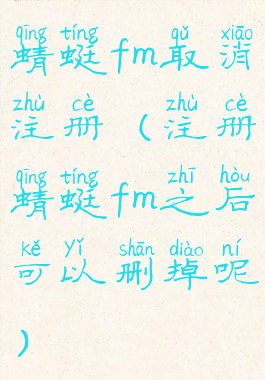 qīng tíng qǔ xiāo
蜻蜓fm取消
zhù cè zhù cè
注册(注册
qīng tíng zhī hòu
蜻蜓fm之后
kě yǐ shān diào ní
可以删掉呢
)